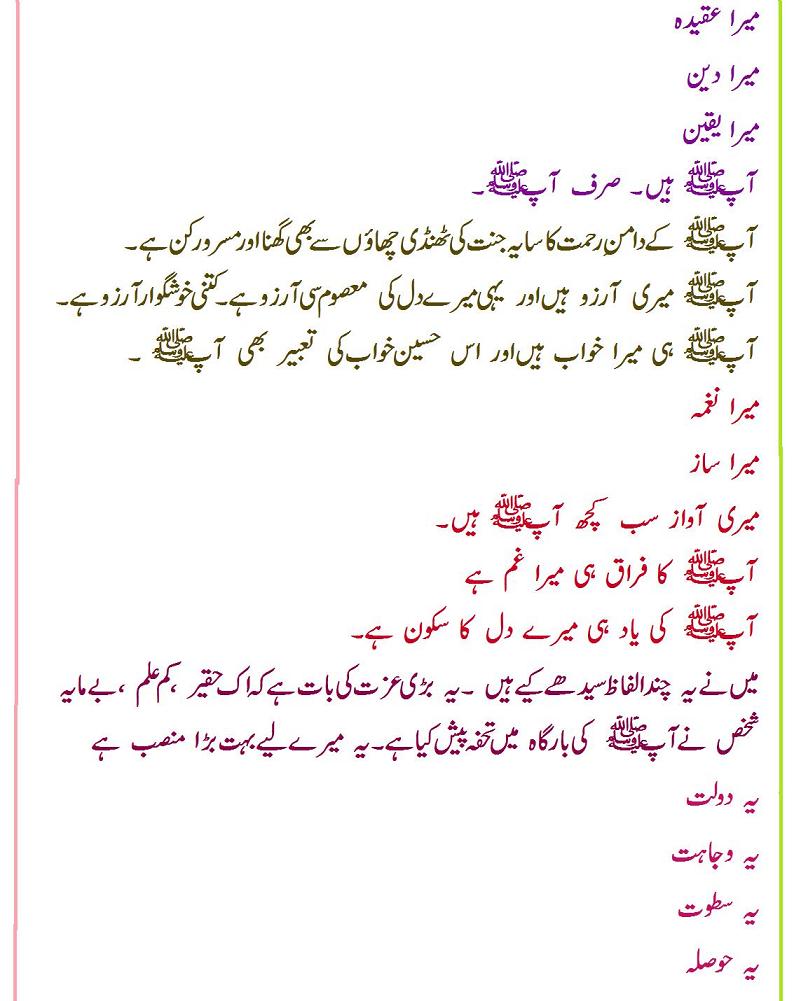 میرا عقیدہ
میرا دین
میرا یقین
آپﷺ ہیں۔ صرف آپﷺ۔
آپﷺ کے دامنِ رحمت کا سایہ جنت کی ٹھنڈی چھاؤں سے بھی گھنا اور مسرور کن ہے۔
آپﷺ میری آرزو ہیں اور یہی میرے دل کی معصوم سی آرزو ہے۔ کتنی خوشگوار آرزو ہے۔
آپﷺ ہی میرا خواب ہیں اور اس حسین خواب کی تعبیر بھی آپﷺ ۔
میرا نغمہ
میرا ساز
میری آواز سب کچھ آپﷺ ہیں۔
آپﷺ کا فراق ہی میرا غم ہے
آپﷺ کی یاد ہی میرے دل کا سکون ہے۔
میں نے یہ چند الفاظ سیدھے کیے ہیں ۔ یہ بڑی عزت کی بات ہے کہ اک حقیر ،کم علم ، بے مایہ
شخص نے آپﷺ کی بارگاہ میں تحفہ پیش کیا ہے۔ یہ میرے لیے بہت بڑا منصب ہے
یہ دولت
یہ وجاہت
یہ سطوت
یہ حوصلہ